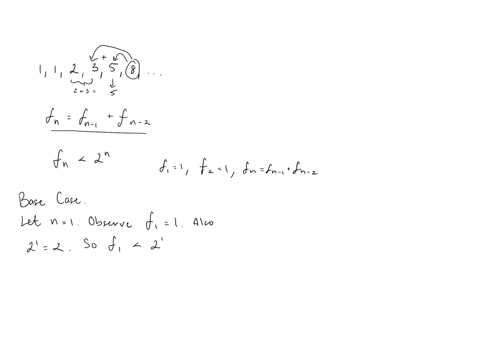 1, 1, 2, 3, 5, 8, ...
+
2+3= 5
fₙ = fₙ₋₁ + fₙ₋₂
fₙ < 2ⁿ
f₁=1, f₂=1, fₙ=fₙ₋₁+fₙ₋₂
Base Case.
Let n=1. Observe f₁=1. Also
2¹=2. So f₁ < 2¹